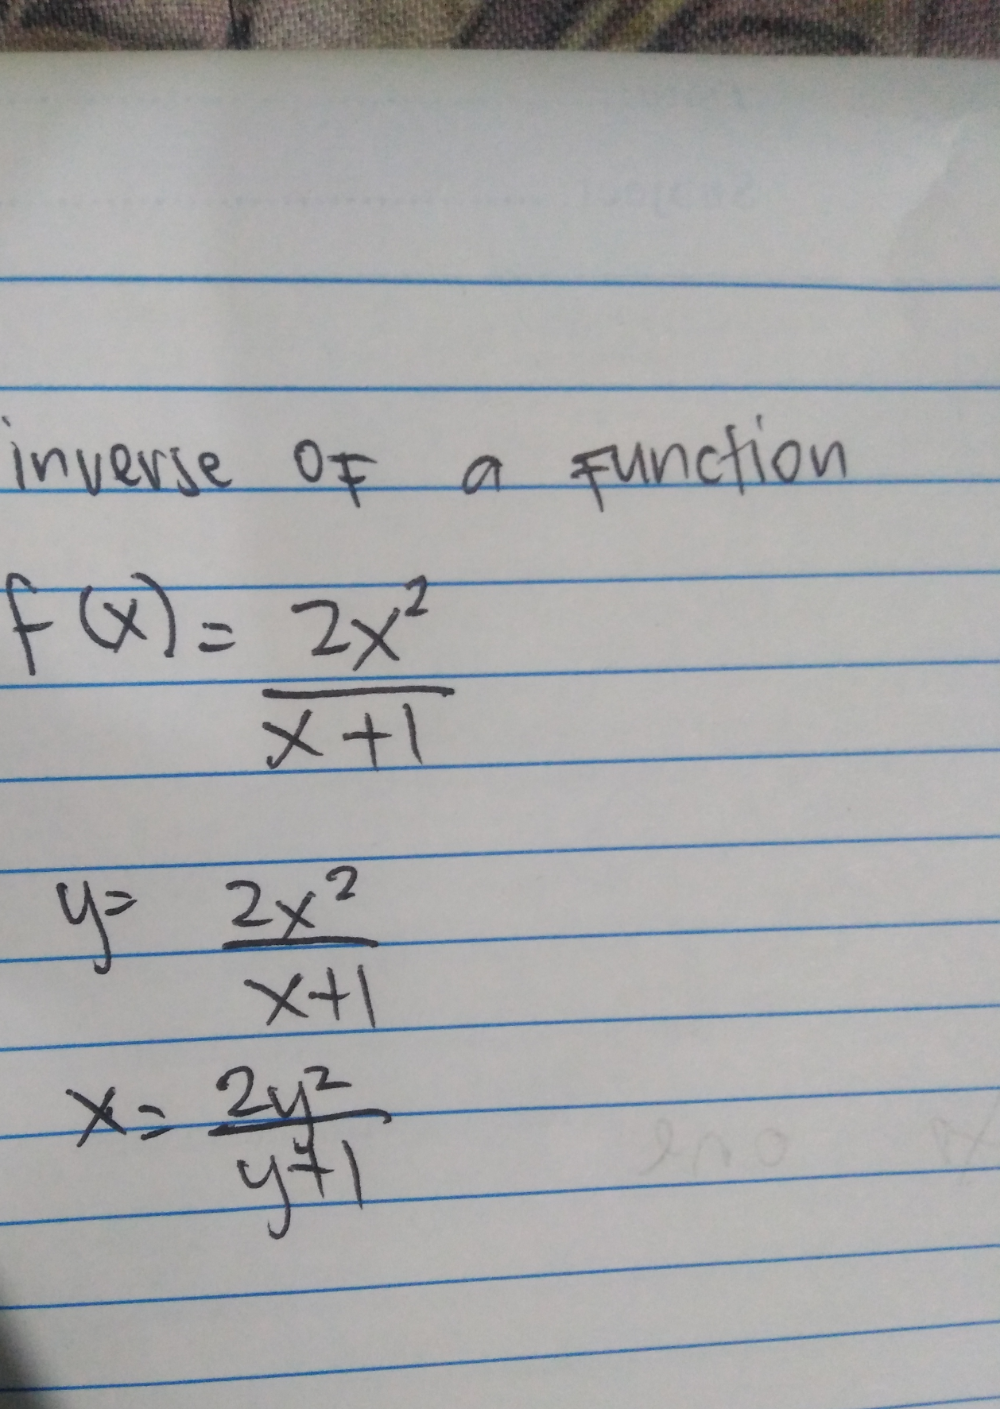 inverse of a function
f(x) = 2x²
x+1
y= 2x²
x+1
x= 2y²
y+1